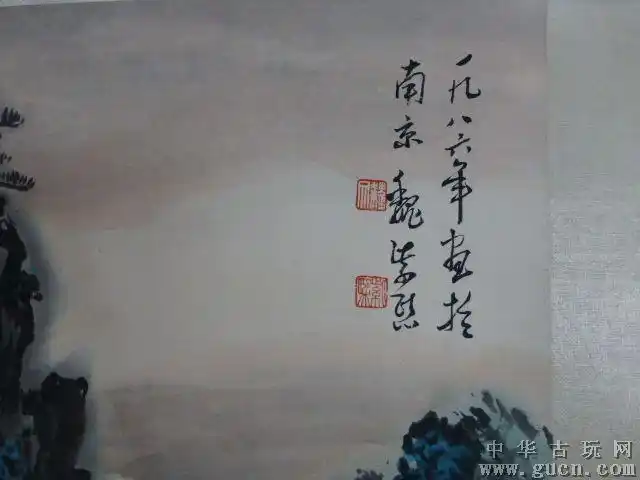 一九八六年画於
南京魏紫熙
中华古玩网
www.gucn.com